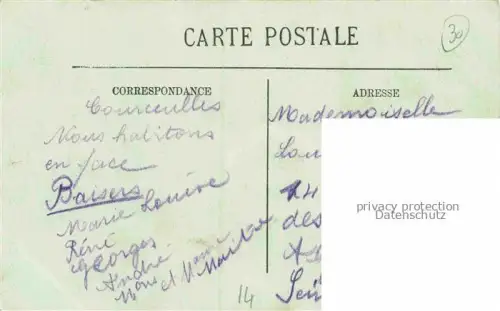 CARTE POSTALE
30
CORRESPONDANCE
Courseulles
Nous habitons
en face
Baisers
Marie Louise
René
Georges
André
Mons et Mame
ADRESSE
Mademoiselle
Lou
14
des
privacy protection
Datenschutz
14